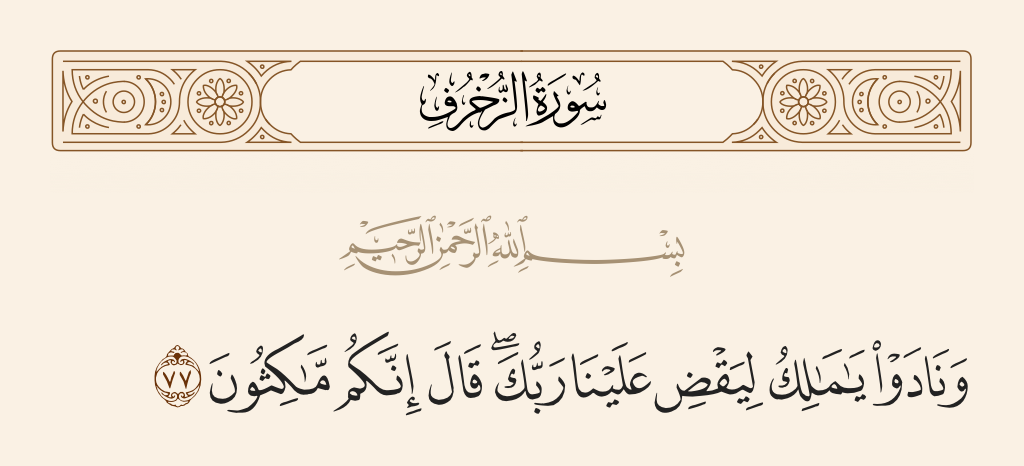 سُورَةُ الزُّخْرُفِ
بِسْمِ ٱللَّهِ ٱلرَّحْمَٰنِ ٱلرَّحِيمِ
وَنَادَوْا۟ يَـٰمَـٰلِكُ لِيَقْضِ عَلَيْنَا رَبُّكَ ۖ قَالَ إِنَّكُم مَّـٰكِثُونَ ٧٧